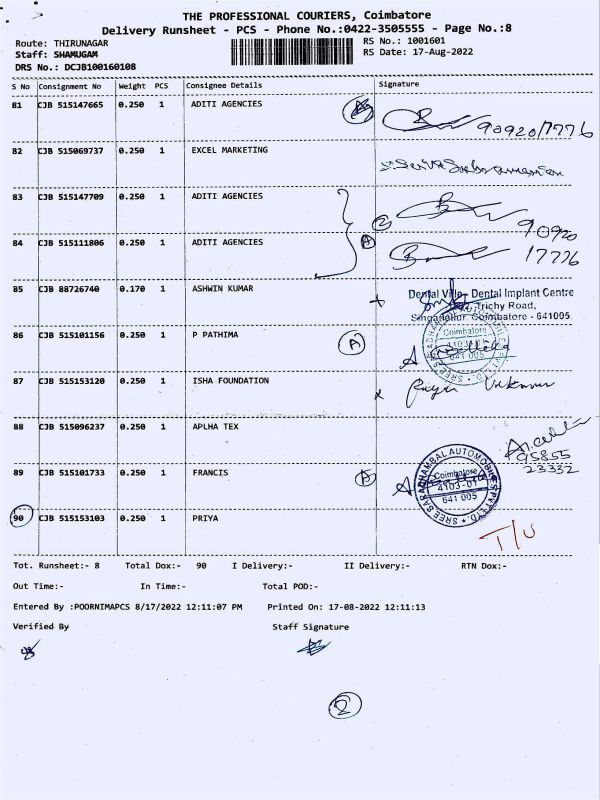 THE PROFESSIONAL COURIERS, Coimbatore
Delivery Runsheet - PCS - Phone No.:0422-3505555 - Page No.:8
Route: THIRUNAGAR RS No.: 1001601
Staff: SHAMUGAM RS Date: 17-Aug-2022
DRS No.: DCJB100160108
S No Consignment No Weight PCS Consignee Details Signature
81 CJB 515147665 0.250 1 ADITI AGENCIES
9092017776
82 CJB 515069737 0.250 1 EXCEL MARKETING
83 CJB 515147709 0.250 1 ADITI AGENCIES
2
90920
84 CJB 515111806 0.250 1 ADITI AGENCIES A
17776
85 CJB 88726740 0.170 1 ASHWIN KUMAR
Dental Ville- Dental Implant Centre
Trichy Road,
Singanallur Coimbatore - 641005
86 CJB 515101156 0.250 1 P PATHIMA A
Coimbatore
641 005
87 CJB 515153120 0.250 1 ISHA FOUNDATION
88 CJB 515096237 0.250 1 APLHA TEX
95855
23332
89 CJB 515101733 0.250 1 FRANCIS
SREE SARADHAMBAL AUTOMOBILES PVT LTD.
Coimbatore
4103-01
641 005
90 CJB 515153103 0.250 1 PRIYA
T/U
Tot. Runsheet:- 8 Total Dox:- 90 I Delivery:- II Delivery:- RTN Dox:-
Out Time:- In Time:- Total POD:-
Entered By :POORNIMAPCS 8/17/2022 12:11:07 PM Printed On: 17-08-2022 12:11:13
Verified By Staff Signature
2